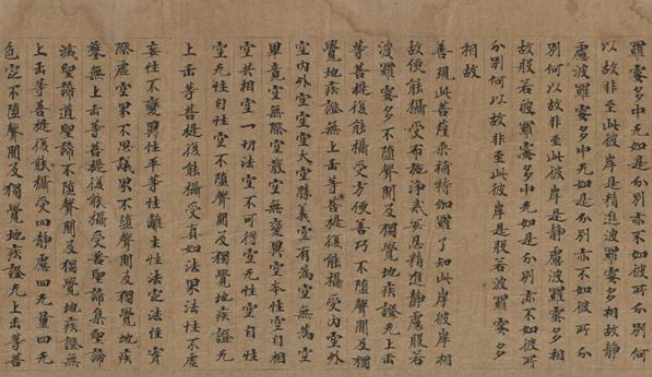 羅蜜多中无如是分別亦不如彼所分別何
以故非至此彼岸是精進波羅蜜多相故靜
慮波羅蜜多中无如是分別亦不如彼所分
別何以故非至此彼岸是靜慮波羅蜜多相
故般若波羅蜜多中无如是分別亦不如彼所
分別何以故非至此彼岸是般若波羅蜜多
相故
善現此菩薩乘補特伽羅了知此岸彼岸相
故便能攝受布施淨戒安忍精進靜慮般若
波羅蜜多不墮聲聞及獨覺地疾證无上正
等菩提復能攝受方便善巧不墮聲聞及獨
覺地疾證無上正等菩提復能攝受內空外
空內外空空空大空勝義空有為空無為空
畢竟空無際空散空無變異空本性空自相
空共相空一切法空不可得空无性空自性
空无性自性空不墮聲聞及獨覺地疾證无
上正等菩提復能攝受真如法界法性不虛
妄性不變異性平等性離生性法定法住實
際虛空界不思議界不墮聲聞及獨覺地疾
證無上正等菩提復能攝受苦聖諦集聖諦
滅聖諦道聖諦不墮聲聞及獨覺地疾證無
上正等菩提復能攝受四靜慮四无量四无
色定不墮聲聞及獨覺地疾證无上正等菩